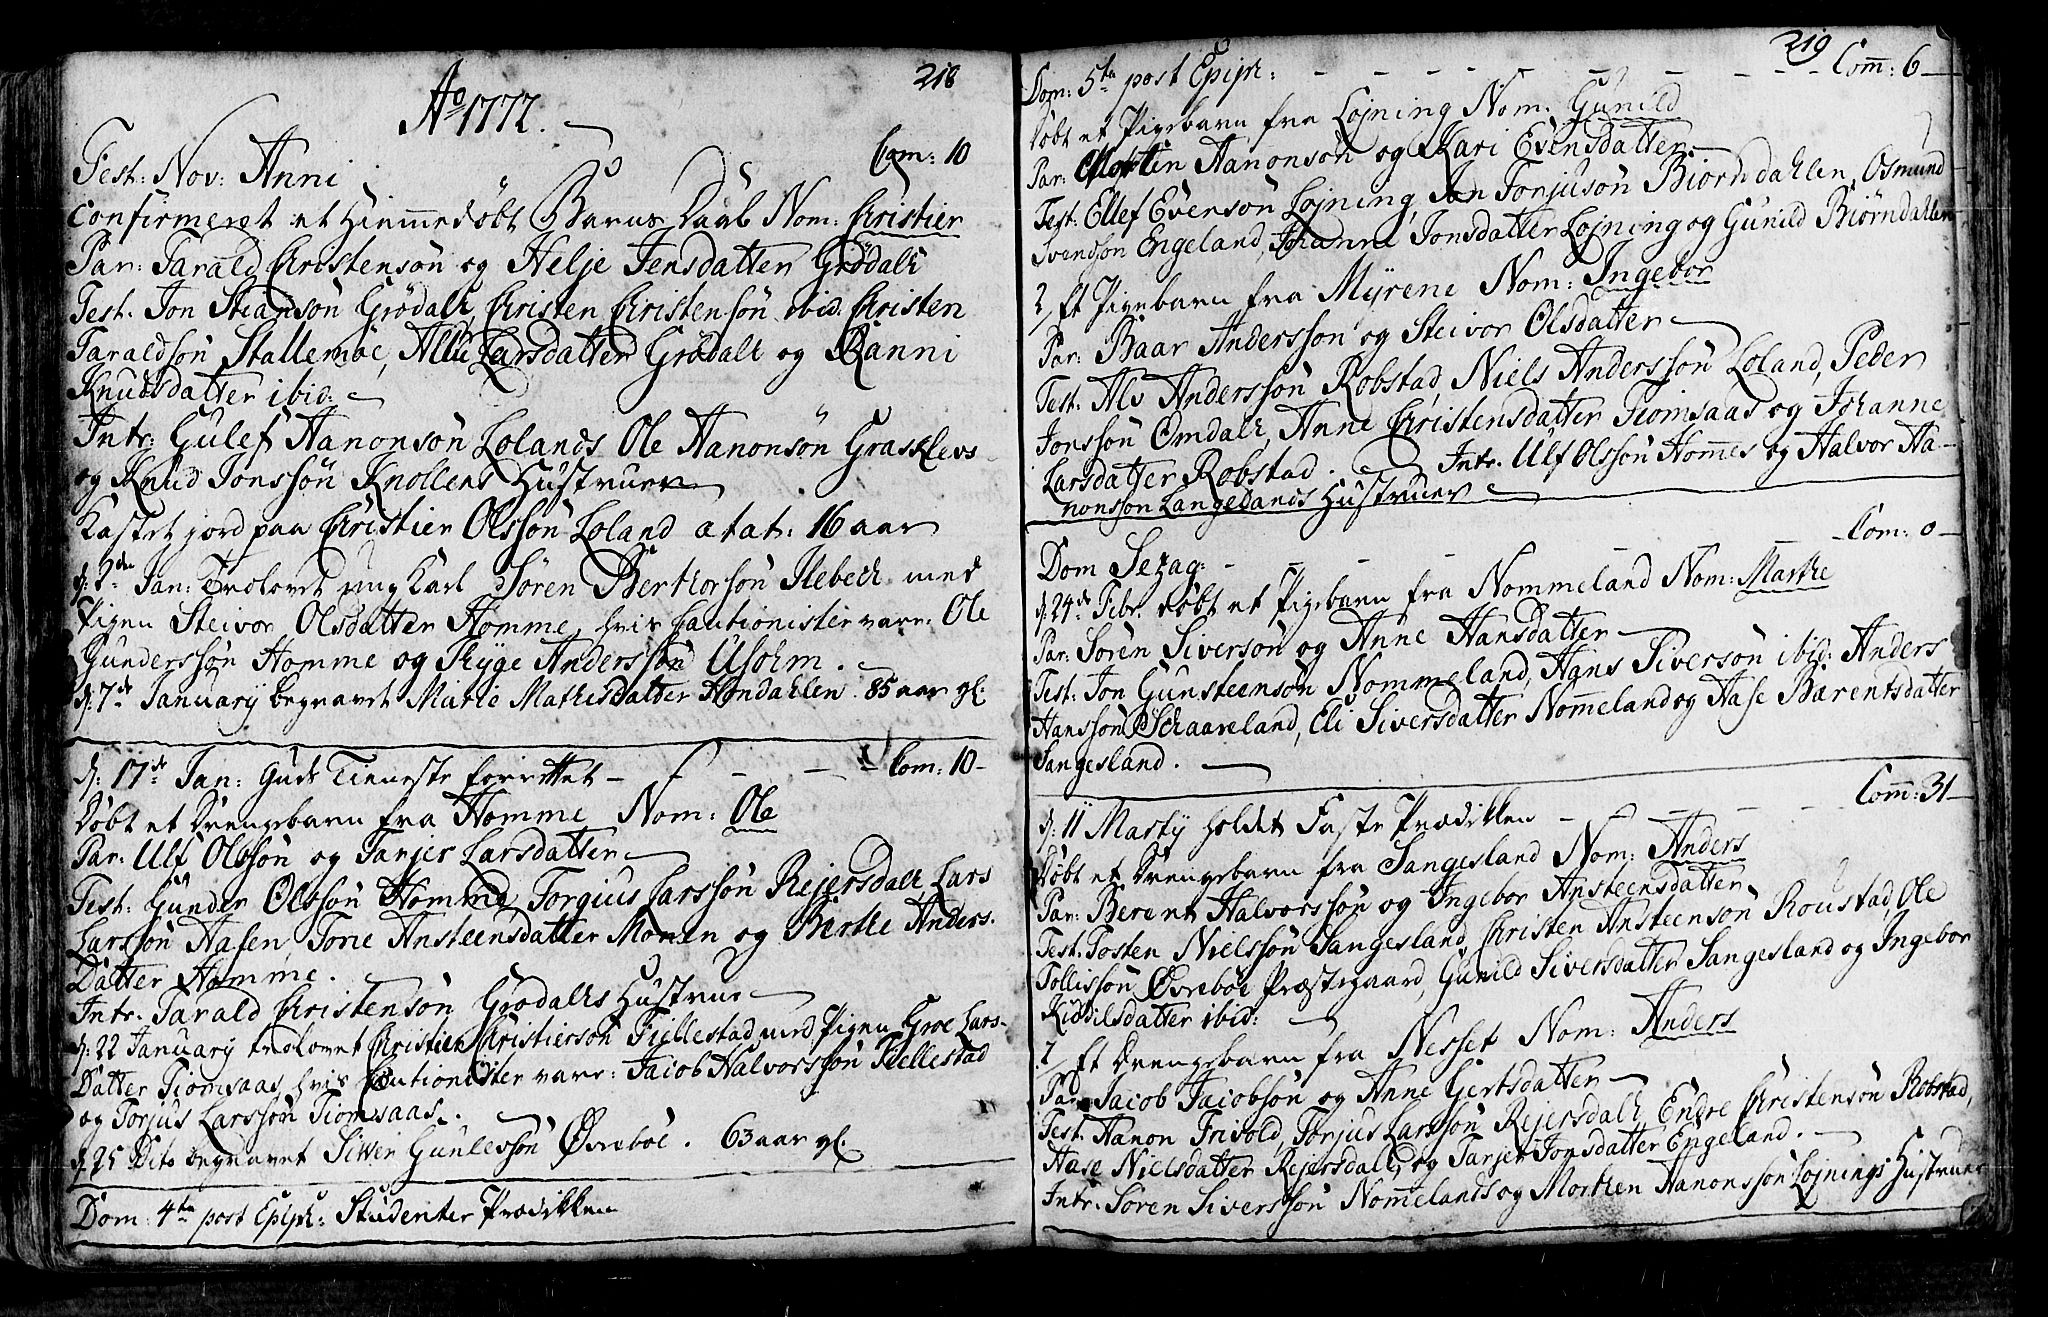 218
Ao 1772.
Fest: Nov: Anni Com: 10
Confirmeret et Hiemmedøbt Barns Daab Nom: Christien
Par: Tarald Christensøn og Helje Jensdatter Grødalh
Test. Jon Steansøn Grødalh, Christen Christensøn ibid. Christen
Taraldsøn Stallemoe, Larsdatter Grødalh og Ranni
Knudsdatter ibid:
Intr: Gulef Hanonsøn Lolands Ole Hanonsøn Grasklevs
og Knud Jonssøn Knollens Hustruer
Kastet jord paa Christien Olssøn Loland ætat: 16 aar
d: Jan: Trolovet ung Karl Søren Berthorsøn Ilebech med
Pigen Steivor Olsdatter Homme, hvis Cautionister vare: Ole
Gunderssøn Homme og Thyge Anderssøn Usohm.
d: 7de January begravet Mathisdatter Hondahlen 85 aar gl:
d: 17de Jan: Guds Tieneste forrettet Com: 10
Døbt et Drengebarn fra Homme Nom: Ole
Par: Ulf Olssøn og Tarjer Larsdatter
Test: Gunder Olssøn Homme, Torgius Larssøn Rejersdalh Lars
Larssøn Aasen, Torie Ansteensdatter Monen og Birthe Anders.
Datter Homme.
Intr. Tarald Christensøn Grødalhs Hustrue
d: 22 January trolovet Christen Christiersøn Fiellestad med Pigen Groe Lars-
Datter Tiomsaas, hvis Cautionister vare: Jacob Halvorssøn Fiellestad
og Torjus Larssøn Tiomsaas.
d: 25 Dito begravet Siwer Gunlessøn Øvreboe. 63 aar gl.
Dom: 4ta post Epiph: Studenter Prædikken
219
Dom: 5ta post Epiph: Com: 6
Døbt et Pigebarn fra Lojning Nom: Gunild
Par: Morten Hanonsøn og Kari Evensdatter
Test: Ellef Evensøn Lojning, Jon Torjusøn Biørndahlen, Osmund
Svendsøn Engeland, Johanne Jonsdatter Lojning og Gunild Biørndahlen
2, Et Pigebarn fra Myrene Nom: Ingebor
Par: Baar Anderssøn og Steivor Olsdatter
Test: Alv Anderssøn Robstad, Niels Anderssøn Loland, Peder
Jonssøn Omdalh, Anne Christensdatter Tiomsaas og Johanne
Larsdatter Robstad. Intr. Ulf Olssøn Hommes og Halvor Ha-
nonssøn Langelands Hustruer
Dom Sexag: Com: 0
d. 24de Febr. døbt et Pigebarn fra Nommeland Nom: Marthe
Par: Søren Siversøn og Anne Hansdatter
Test: Jon Gunsteensøn Nommeland, Hans Siversøn ibid: Anders
Hanssøn Schaareland, Eli Siversdatter Nommeland og Aase Bærentsdatter
Sangesland.
d: 11 Marty holdet Faste Prædikken Com: 31
Døbt et Drengebarn fra Sangesland Nom: Anders
Par: Berent Halvorssøn og Ingebor Ansteensdatter
Test: Tosten Nielssøn Sangesland, Christen Ansteensøn Roustad, Ole
Tollissøn Øvreboe Præstegaard, Gunild Siversdatter Sangesland og Ingebor
Kiddilsdatter ibid:
2, Et Drengebarn fra Nesset Nom: Anders
Par: Jacob Jacobsøn og Anne Gertsdatter
Test. Hanon Frivold, Torjus Larssøn Rejersdalh, Endre Christensøn Robstad,
Aase Nielsdatter Rejersdalh, og Tarjer Jonsdatter Engeland.
Intr. Søren Siverssøn Nommelands og Morthen Hanonssøn Lojnings Hustruer